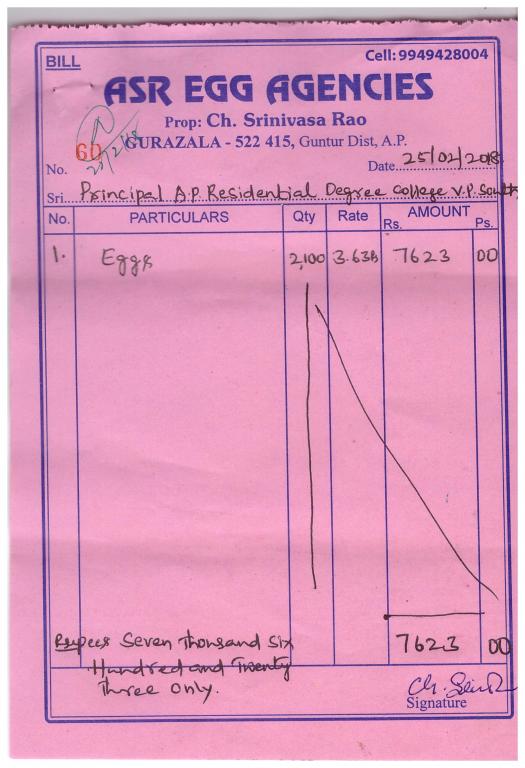 BILL
Cell: 9949428004
ASR EGG AGENCIES
Prop: Ch. Srinivasa Rao
GURAZALA - 522 415, Guntur Dist, A.P.
No. 60
Date 25/02/2018
Sri Principal A.P. Residential Degree College V.P. South
No. PARTICULARS Qty Rate AMOUNT
Rs. Ps.
1. Eggs 2,100 3.63 7623 00
Rupees Seven Thousand Six 7623 00
Hundred and Twenty
Three Only.
Signature